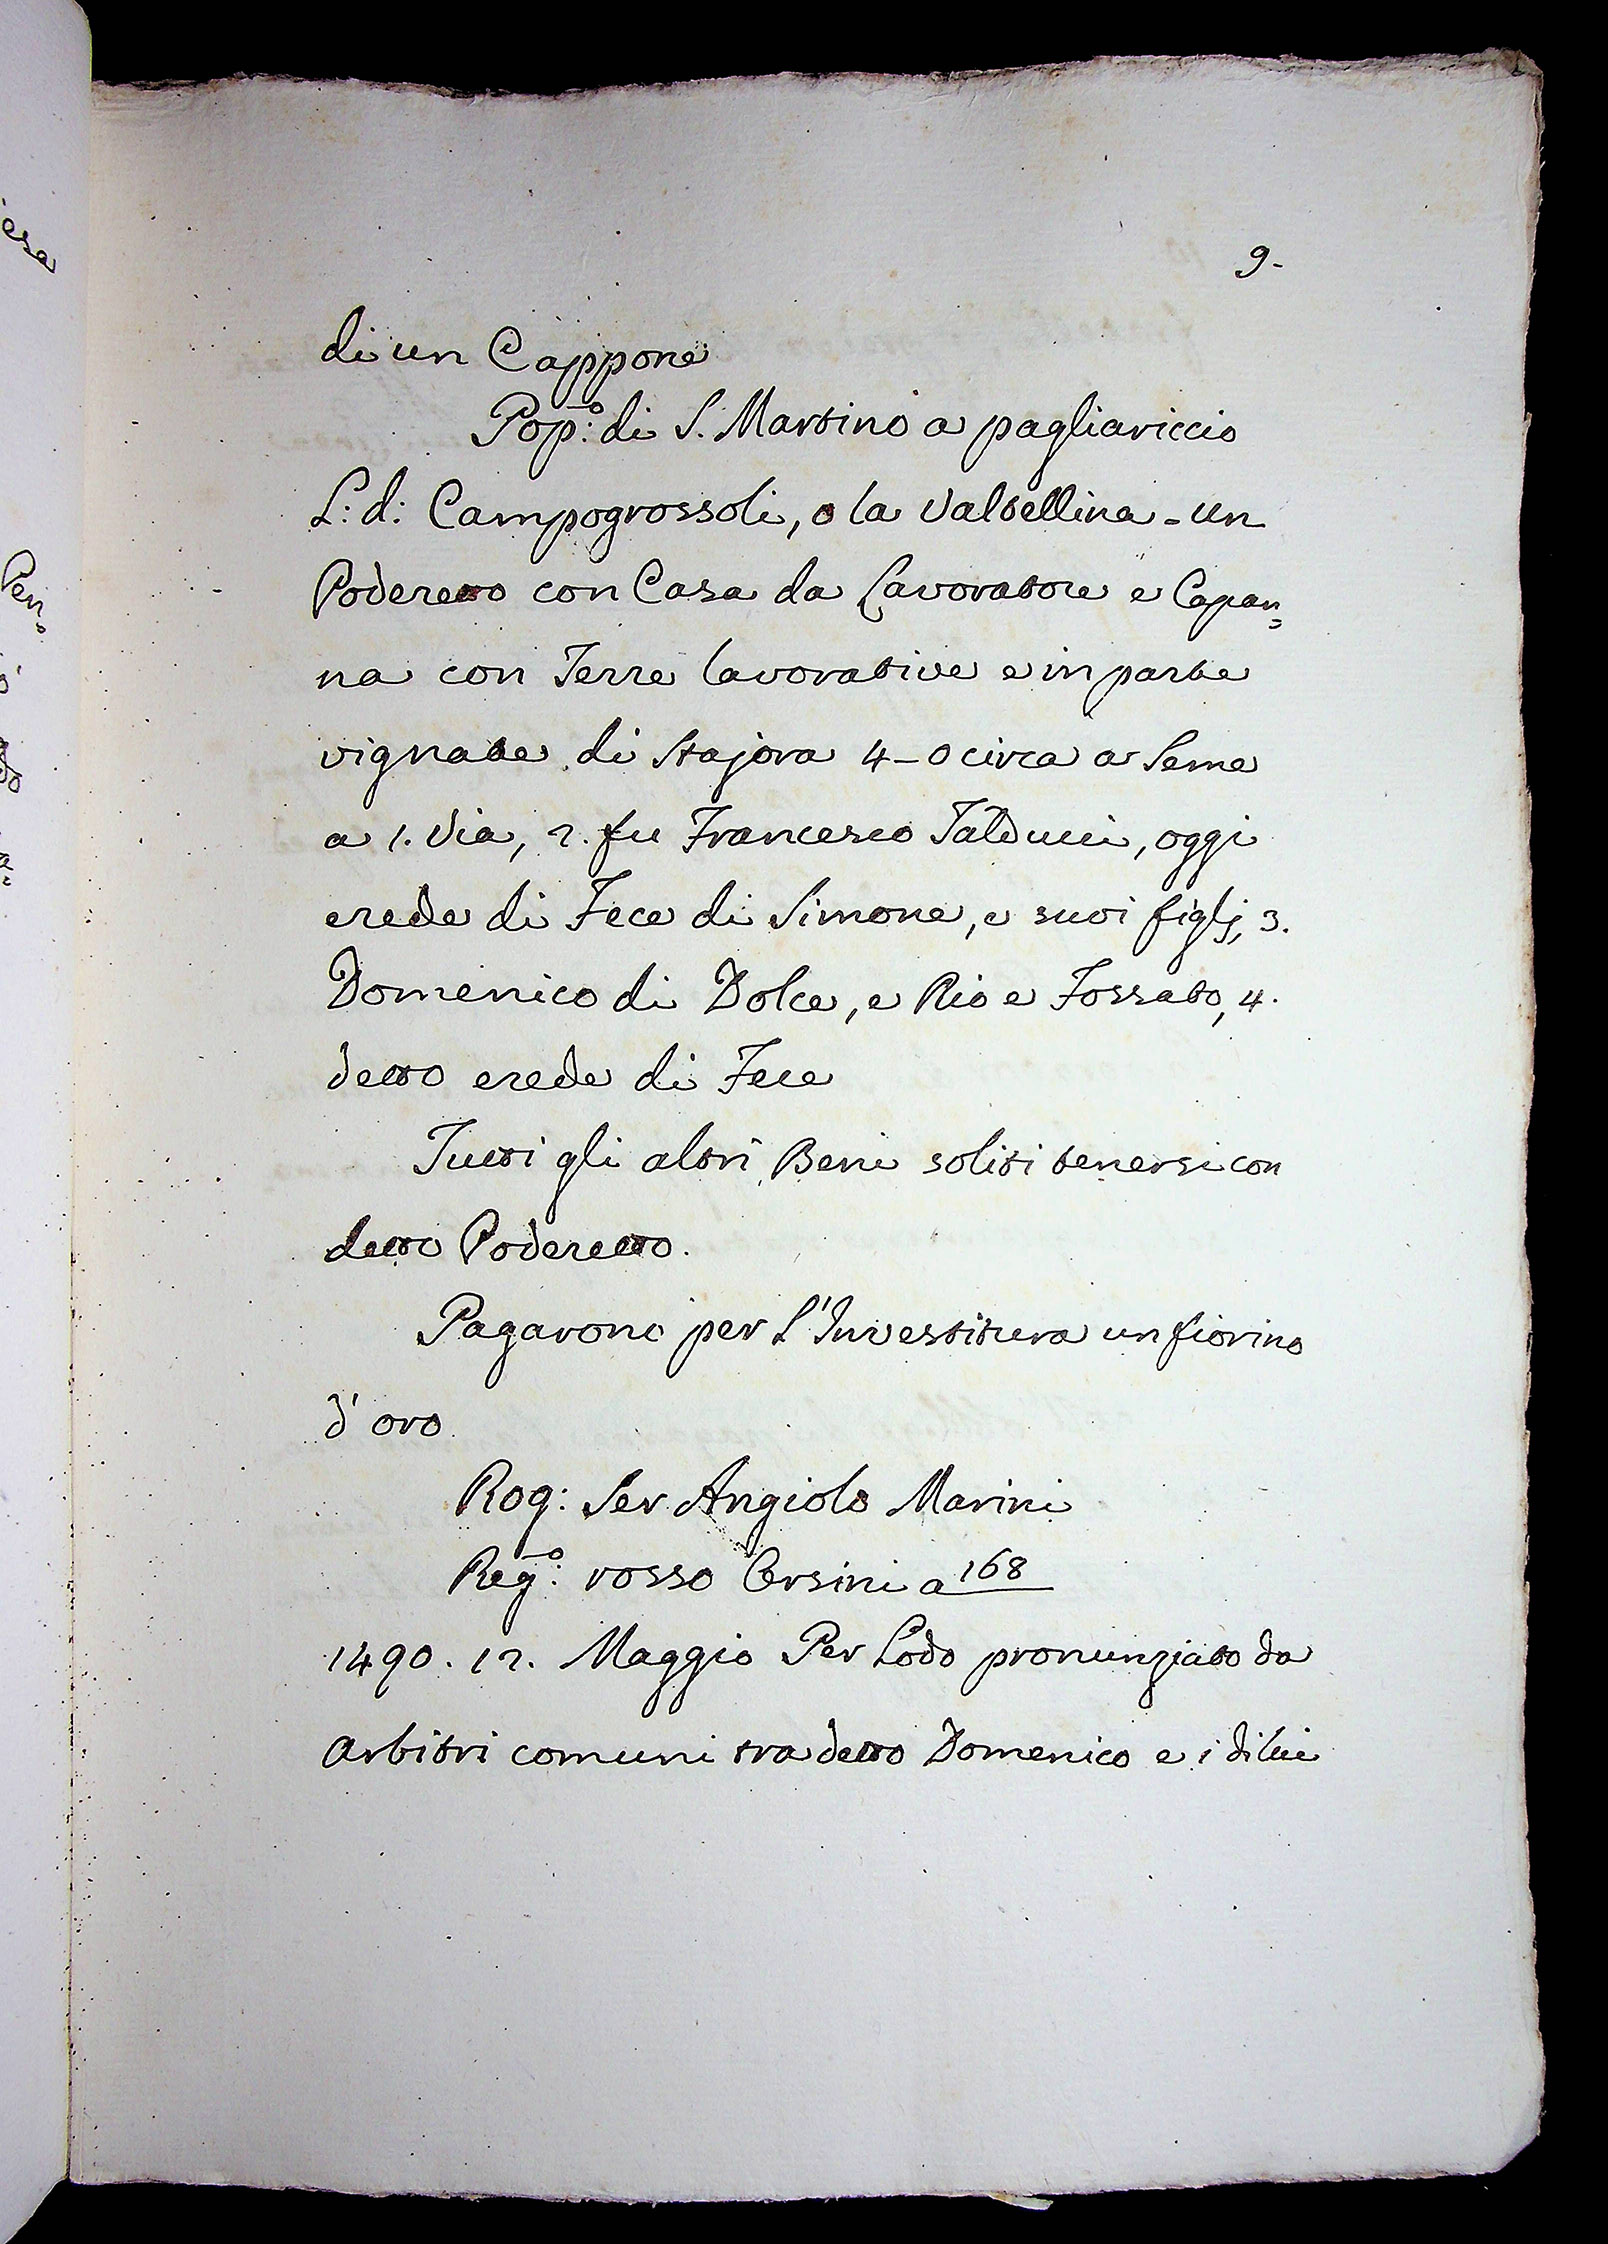 9.
di un Cappone
Pop:º di S. Martino a pagliariccio
L: d: Campogrossoli, o la Valtellina - un
Poderetto con Casa da Lavoratore e Capan=
na con Terre lavorative e in parte
vignate di Stajora 4-0 circa a Seme
a 1. Via, 2. fu Francesco Talducci, oggi
erede di Fece di Simone, e suoi figlj, 3.
Domenico di Dolce, e Rio e Fossato, 4.
detto erede di Fece
Tutti gli altri Beni soliti tenersi con
detto Poderetto.
Pagarono per l'Investitura un fiorino
d'oro
Rog: Ser Angiolo Marini
Reg:º rosso Orsini a 168
1490. 12. Maggio Per Lodo pronunziato da
Arbitri comuni tra detto Domenico e i di lui